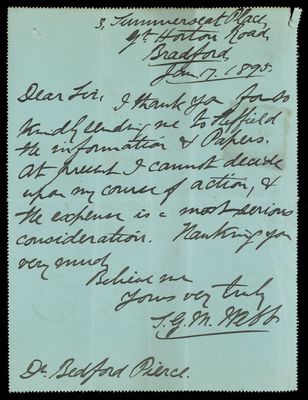 3, Summerseat Place,
Gt Horton Road
Bradford
Jan. 17. 1898.
Dear Sir, I thank you for so
kindly sending me to Sheffield
the information & Papers.
At present I cannot decide
upon my course of action, &
the expense is a most serious
consideration. Thanking you
very much
Believe me
Yours very truly
S. G. M. Webb
Dr. Bedford Pierce.